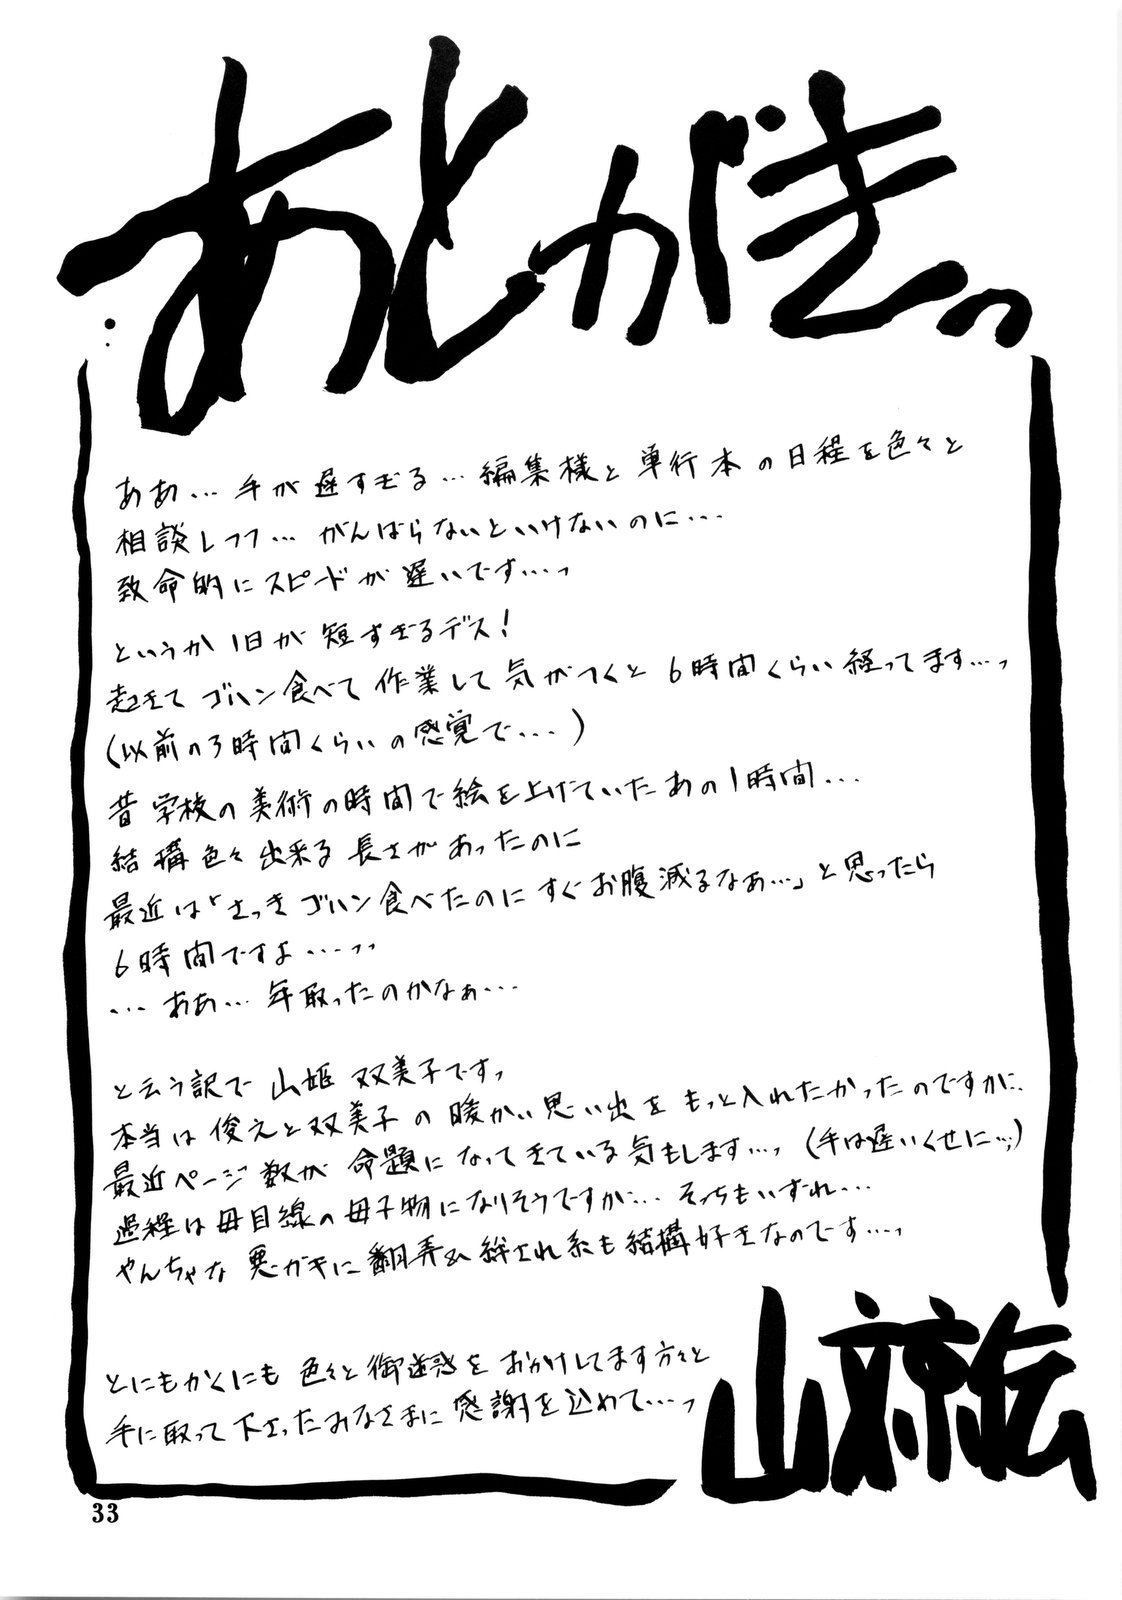 あとがきっ
ああ… 手が遅すぎる… 編集様と単行本の日程を色々と
相談しつつ… がんばらないといけないのに…
致命的にスピードが遅いです…っ
というか1日が短すぎるデス!
起きてゴハン食べて作業して気がつくと6時間くらい経ってます…っ
(以前の3時間くらいの感覚で…)
昔学校の美術の時間で絵を上げていたあの1時間…
結構色々出来る長さがあったのに
最近は「さっきゴハン食べたのにすぐお腹減るなぁ…」と思ったら
6時間ですよ…っっ
… ああ… 年取ったのかなぁ…
と云う訳で 山姫 双美子ですっ
本当は 俊之と双美子の暖かい思い出をもっと入れたかったのですがに
最近ページ数が命題になってきている気もします…っ (手は遅いくせに…;)
過程は母目線の母子物になりそうですが… そっちもいずれ…
やんちゃな悪ガキに翻弄&絆され系も結構好きなのです…っ
とにもかくにも 色々と御迷惑をおかけしてます方々と
手に取って下さったみなさまに感謝を込めて…っ
山文京伝
33